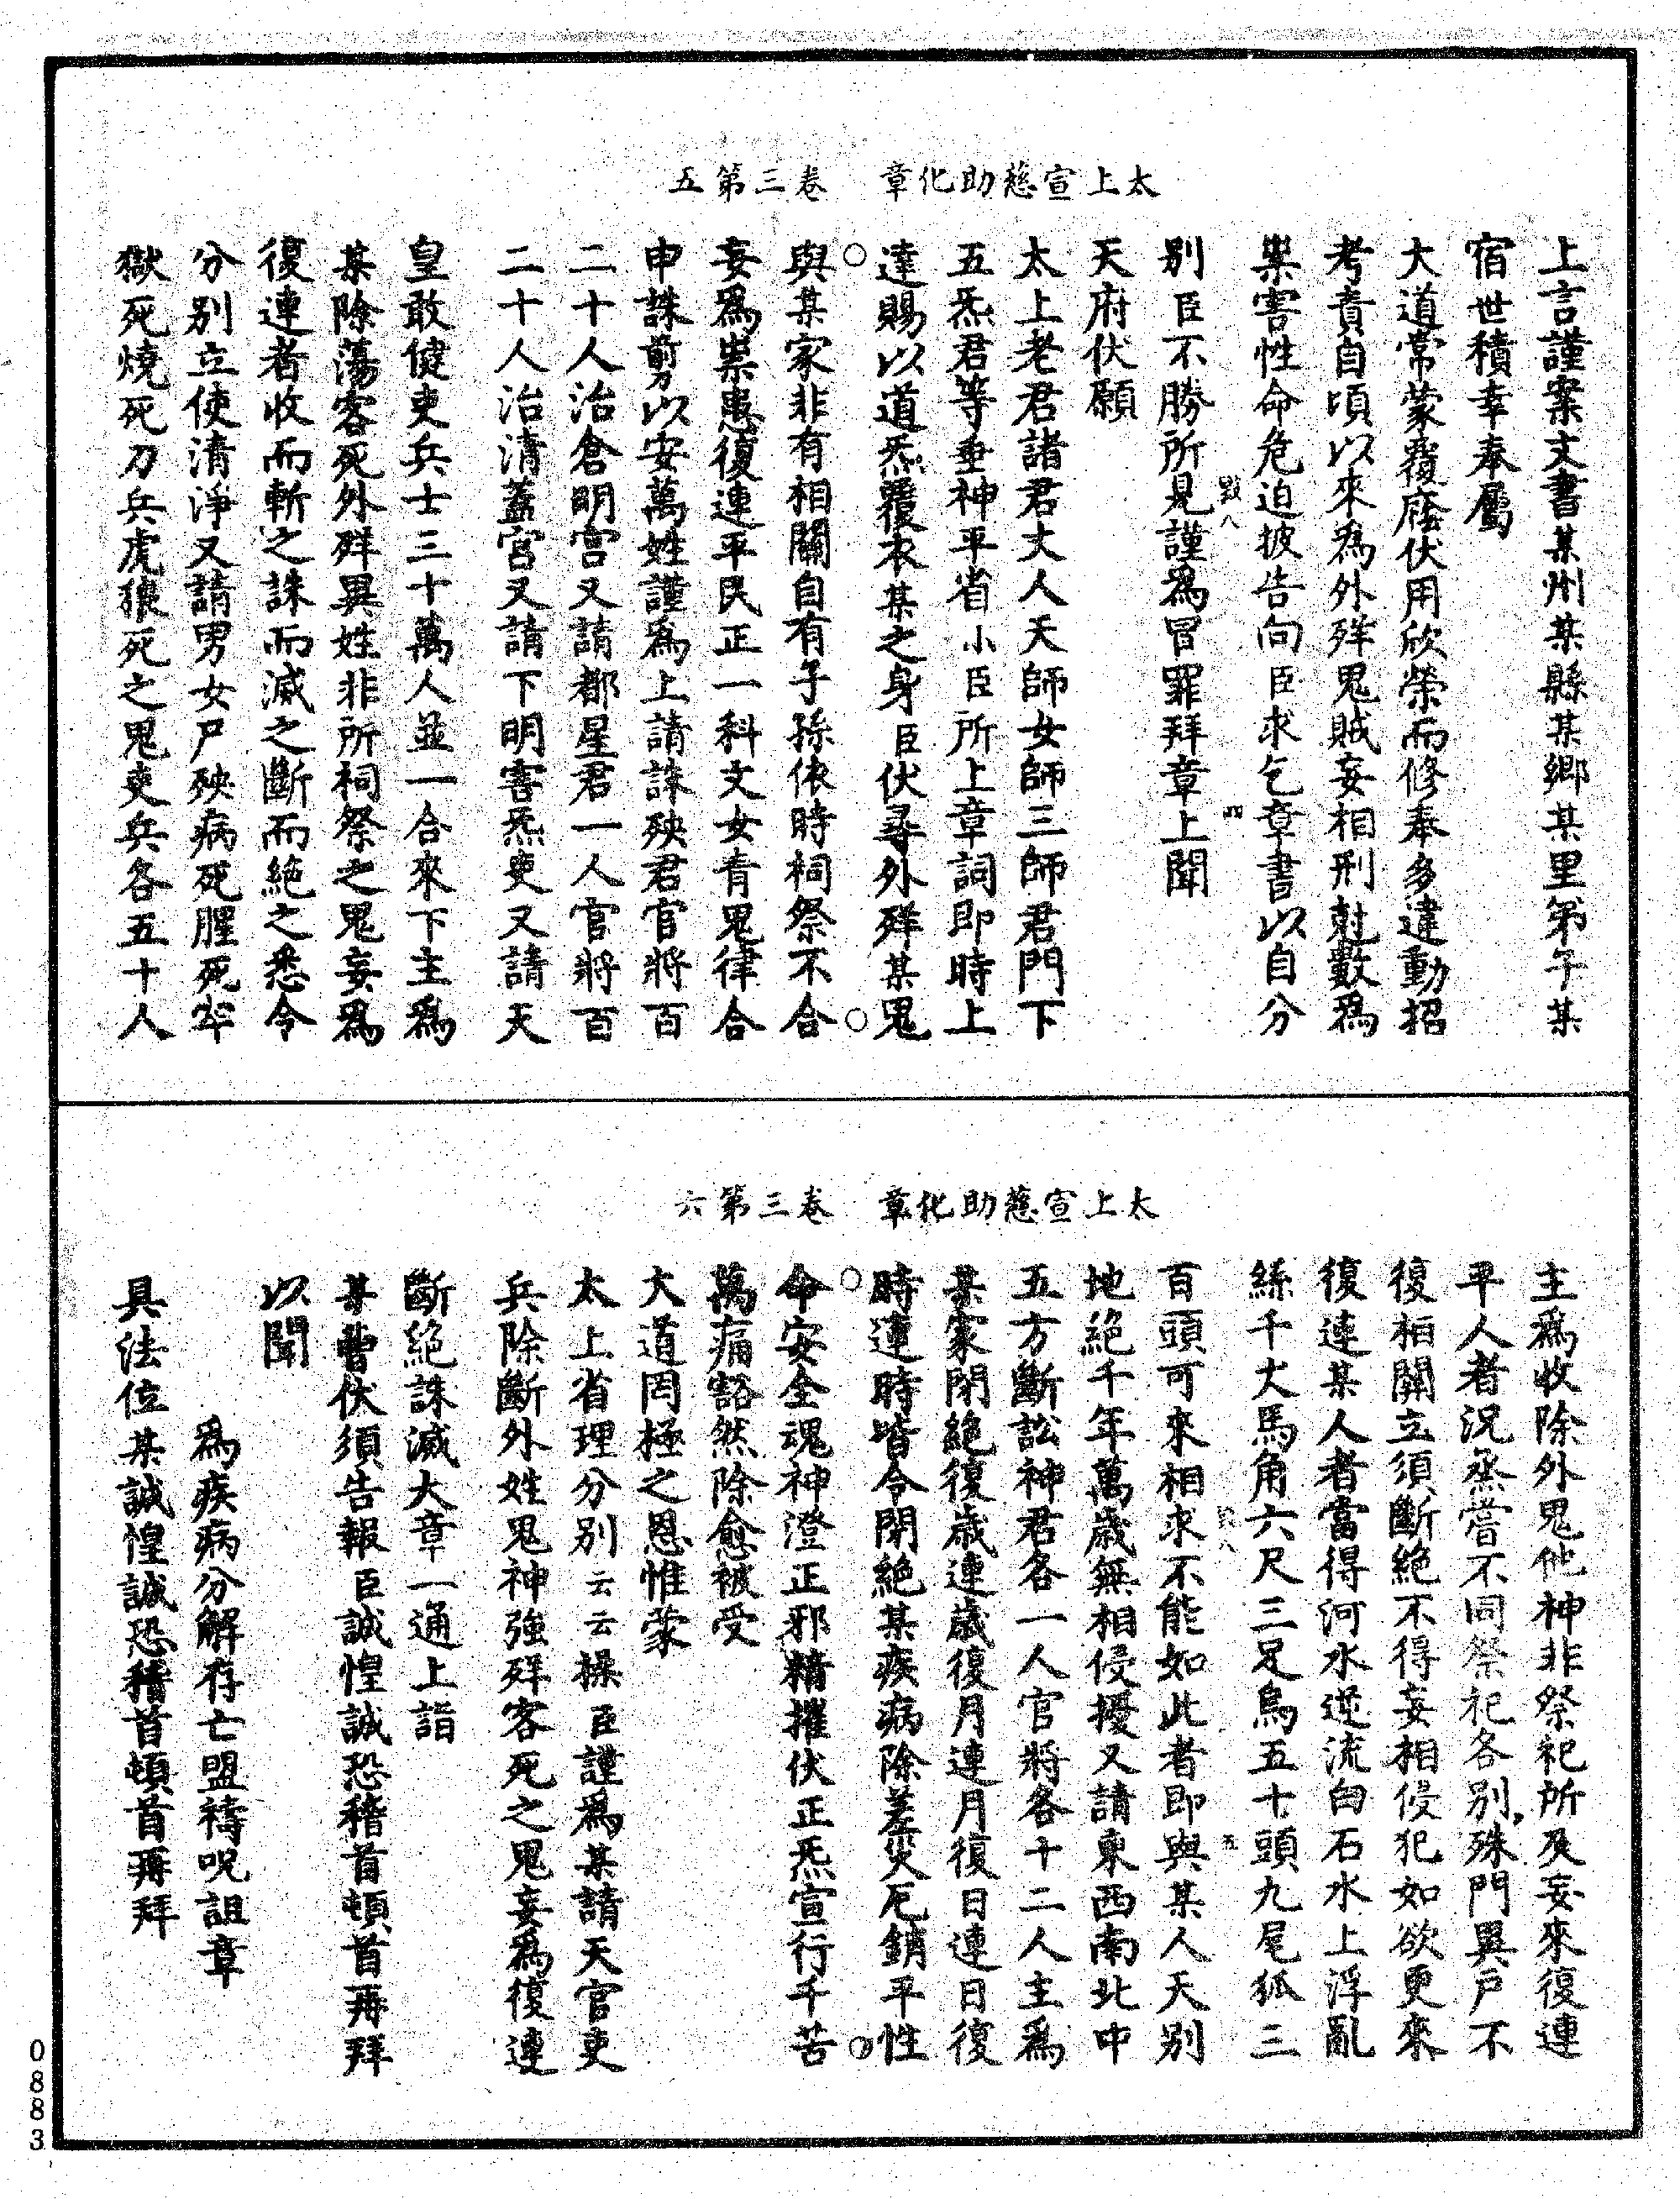 太上宣慈助化章　卷三第五
上言謹案文書某州某縣某鄉某里第子某
宿世積幸奉屬
大道常蒙覆廕伏用欣榮而修奉多違動招
考責自頃以來為外殃鬼賊妄相刑尅數為
祟害性命危迫披告向臣求乞章書以自分
別臣不勝所見謹為冒罪拜章上聞
天府伏願
太上老君諸君丈人天師女師三師君門下
五炁君等垂神平省小臣所上章詞即時上
達賜以道炁覆衣某之身臣伏尋外殃某鬼
與某家非有相關自有子孫依時祠祭不合
妄為祟患復連平民正一科文女青鬼律合
申誅剪以安萬姓謹為上請誅殃君官將百
二十人治倉明宮又請都星君一人官將百
二十人治清蓋宮又請下明害炁吏又請天
皇敢健吏兵士三十萬人並一合來下主為
某除蕩客死外殃異姓非所祠祭之鬼妄為
復連者收而斬之誅而滅之斷而絕之悉令
分別立使清淨又請男女尸殃病死腥死牢
獄死燒死刀兵虎狼死之鬼吏兵各五十人
太上宣慈助化章　卷三第六
主為收除外鬼他神非祭祀所及妄來復連
平人者況烝嘗不同祭祀各別殊門異戶不
復相關立須斷絕不得妄相侵犯如欲更來
復連某人者當得河水逆流白石水上浮亂
絲千丈馬角六尺三足烏五十頭九尾狐三
百頭可來相求不能如此者即與某人天別
地絕千年萬歲無相侵擾又請東西南北中
五方斷訟神君各一人官將各十二人主為
某家閉絕復歲連歲復月連月復日連日復
時連時皆令閉絕某疾病除差災厄銷平性
命安全魂神澄正邪精摧伏正炁宣行千苦
萬痛豁然除愈被受
大道罔極之恩惟蒙
太上省理分別云云操臣謹為某請天官吏
兵除斷外姓鬼神強殃客死之鬼妄為復連
斷絕誅滅大章一通上詣
某曹伏須告報臣誠惶誠恐稽首頓首再拜
以聞
為疾病分解存亡盟禱呪詛章
具法位某誠惶誠恐稽首頓首再拜
0883